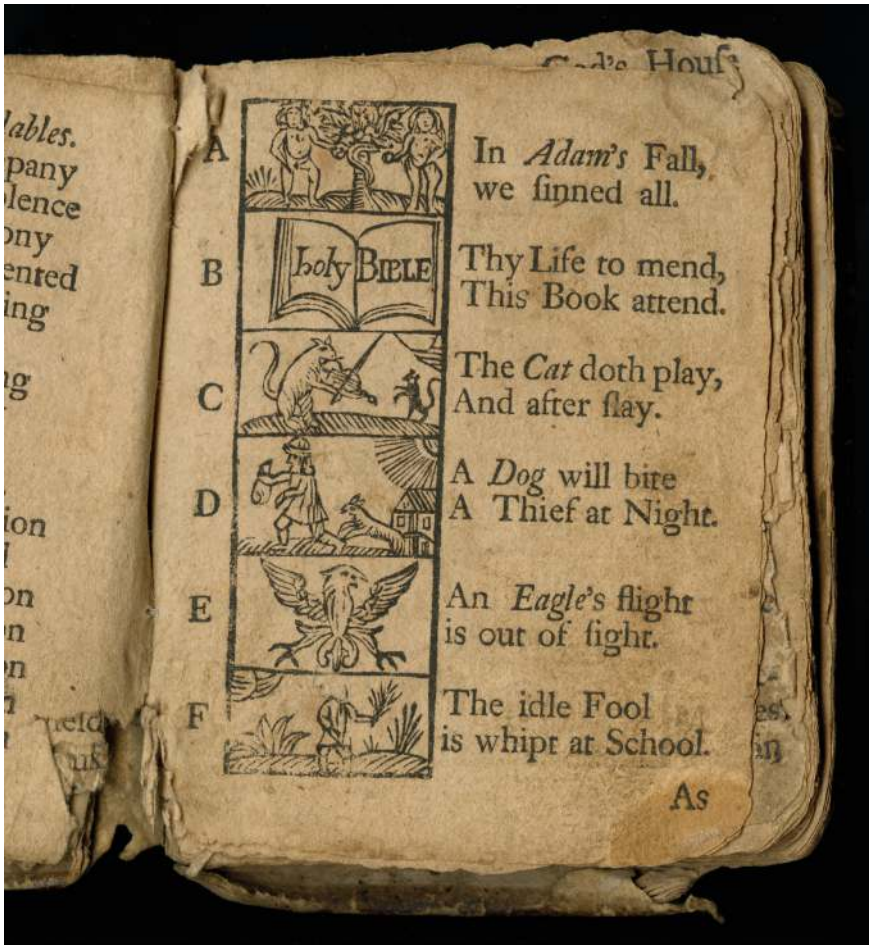 God's Houſe
lables.
pany
lence
ony
ented
ing
ng
ion
on
on
on
A
In Adam's Fall,
we ſinned all.
B
holy BIBLE
Thy Life to mend,
This Book attend.
C
The Cat doth play,
And after ſlay.
D
A Dog will bite
A Thief at Night.
E
An Eagle's flight
is out of ſight.
F
The idle Fool
is whipt at School.
As